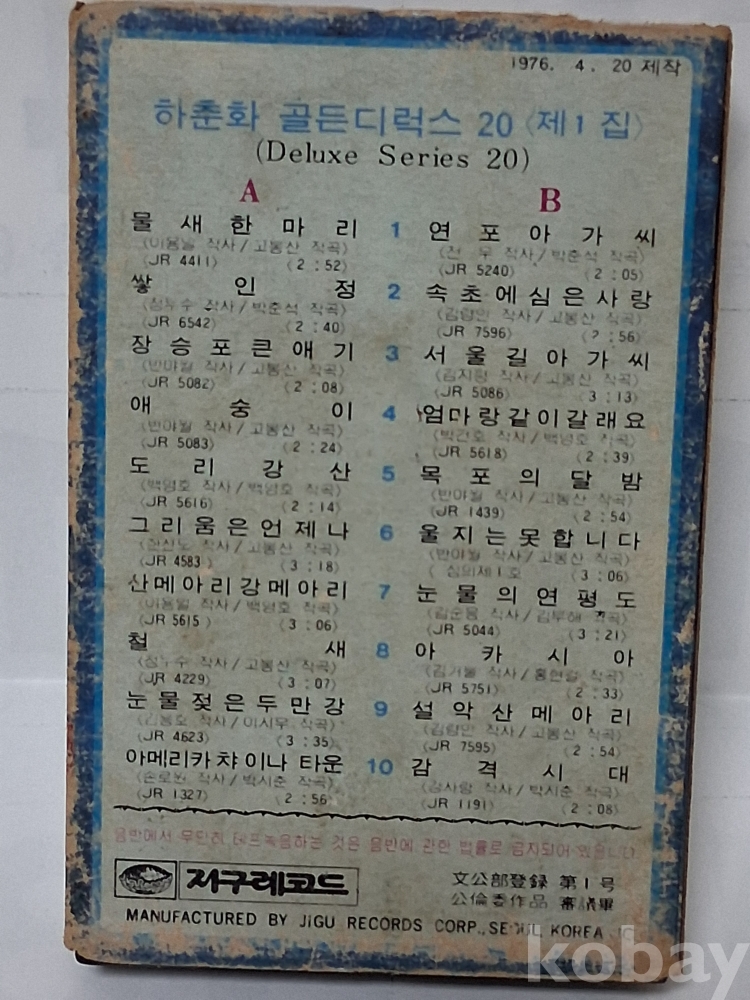 1976. 4. 20 제작
하춘화 골든디럭스 20 〈제1집〉
(Deluxe Series 20)
A
B
물새한마리 1 연포아가씨
(이용일 작사/고봉산 작곡) (전우 작사/박춘석 작곡)
(JR 4411) (2:52) (JR 5240) (2:05)
쌓인정 2 속초에심은사랑
작사/박춘석 작곡) 작사/고봉산 작곡)
(JR 6542) (2:40) (JR 7596) (2:56)
장승포큰애기 3 서울길아가씨
(반야월 작사/고봉산 작곡) 작사/고봉산 작곡)
(JR 5082) (2:08) (JR 5086) (3:13)
애숭이 4 엄마랑같이갈래요
(반야월 작사/고봉산 작곡) 작사/백영호 작곡)
(JR 5083) (2:24) (JR 5618) (2:39)
도리강산 5 목포의달밤
(백영호 작사/백영호 작곡) (반야월 작사/고봉산 작곡)
(JR 5616) (2:14) (JR 1439) (2:54)
그리움은언제나 6 울지는못합니다
(한산도 작사/고봉산 작곡) (반야월 작사/고봉산 작곡)
(JR 4583) (3:18) (3:06)
산메아리강메아리 7 눈물의연평도
작사/백영호 작곡) 작사/김부해 작곡)
(JR 5615) (3:06) (JR 5044) (3:21)
철새 8 아카시아
작사/고봉산 작곡) 작사/홍현걸 작곡)
(JR 4229) (3:07) (JR 5751) (2:33)
눈물젖은두만강 9 설악산메아리
작사/이시우 작곡) 작사/고봉산 작곡)
(JR 4623) (3:35) (JR 7595) (2:54)
아메리카챠이나타운 10 감격시대
(손로원 작사/박시춘 작곡) (강사랑 작사/박시춘 작곡)
(JR 1327) (2:56) (JR 1191) (2:08)
음반에서 무단히 테프녹음하는 것은 음반에 관한 법률로 금지되어 있읍니다
지구레코드
文公部登録 第1号
公倫委作品 審議畢
MANUFACTURED BY JIGU RECORDS CORP., SEOUL KOREA
kobay